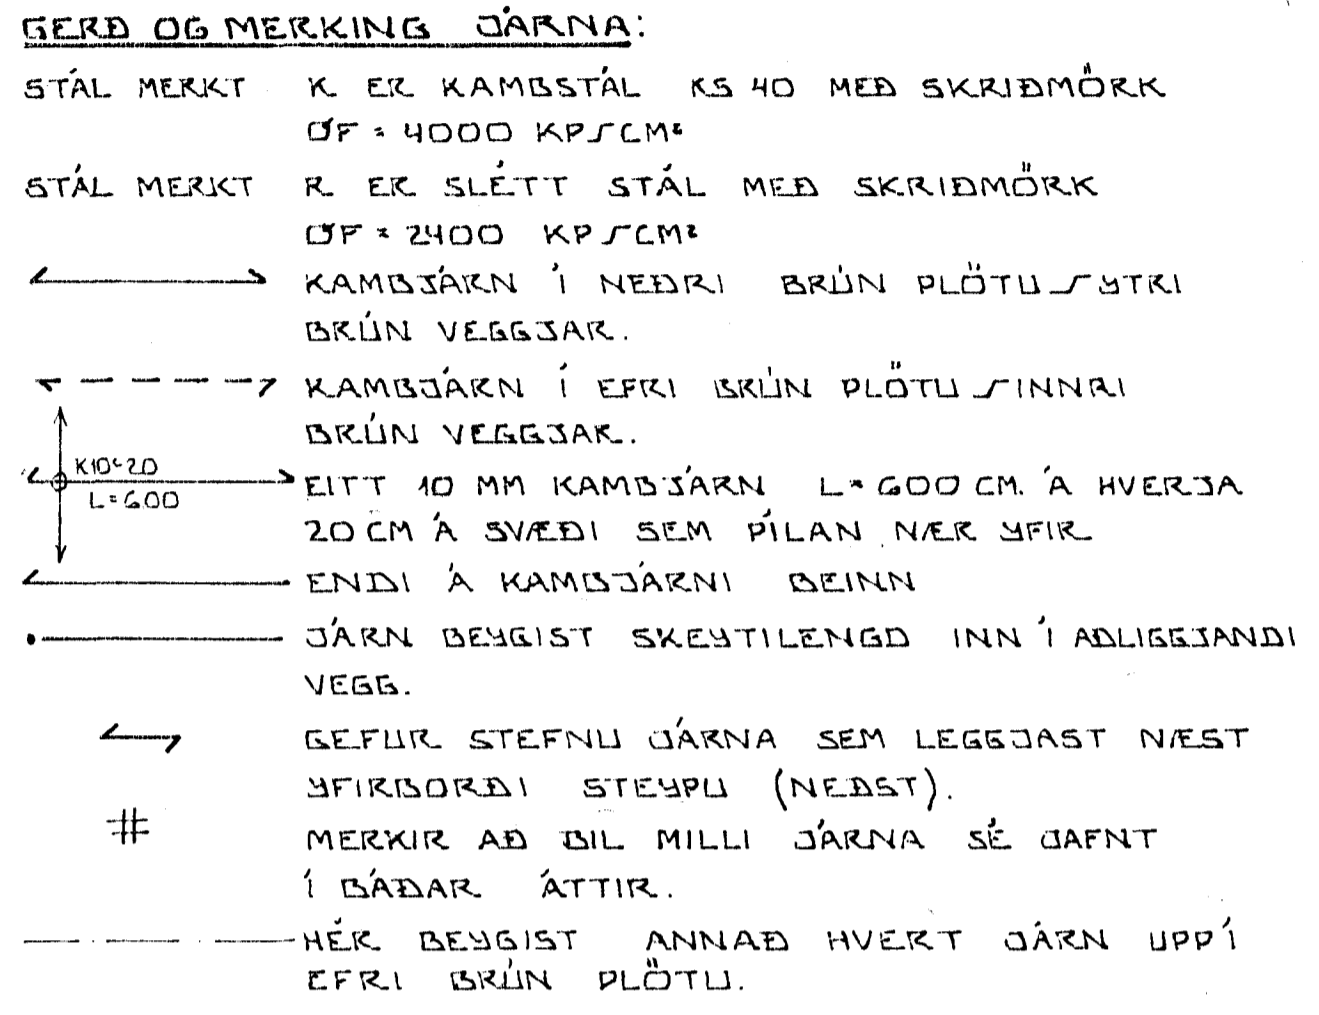 GERÐ OG MERKING JÁRNA:
STÁL MERKT K ER KAMBSTÁL KS 40 MEÐ SKRIÐMÖRK
σF = 4000 KP/CM²
STÁL MERKT R ER SLÉTT STÁL MEÐ SKRIÐMÖRK
σF = 2400 KP/CM²
KAMBJÁRN Í NEÐRI BRÚN PLÖTU/YTRI
BRÚN VEGGJAR.
KAMBJÁRN Í EFRI BRÚN PLÖTU/INNRI
BRÚN VEGGJAR.
K10c20
L=600
EITT 10 MM KAMBJÁRN L=600 CM. Á HVERJA
20 CM Á SVÆÐI SEM PÍLAN NÆR YFIR
ENDI Á KAMBJÁRNI BEINN
JÁRN BEYGIST SKEYTILENGD INN Í AÐLIGGJANDI
VEGG.
GEFUR STEFNU JÁRNA SEM LEGGJAST NÆST
YFIRBORÐI STEYPU (NEÐST).
# MERKIR AÐ BIL MILLI JÁRNA SÉ JAFNT
Í BÁÐAR ÁTTIR.
HÉR BEYGIST ANNAÐ HVERT JÁRN UPP Í
EFRI BRÚN PLÖTU.